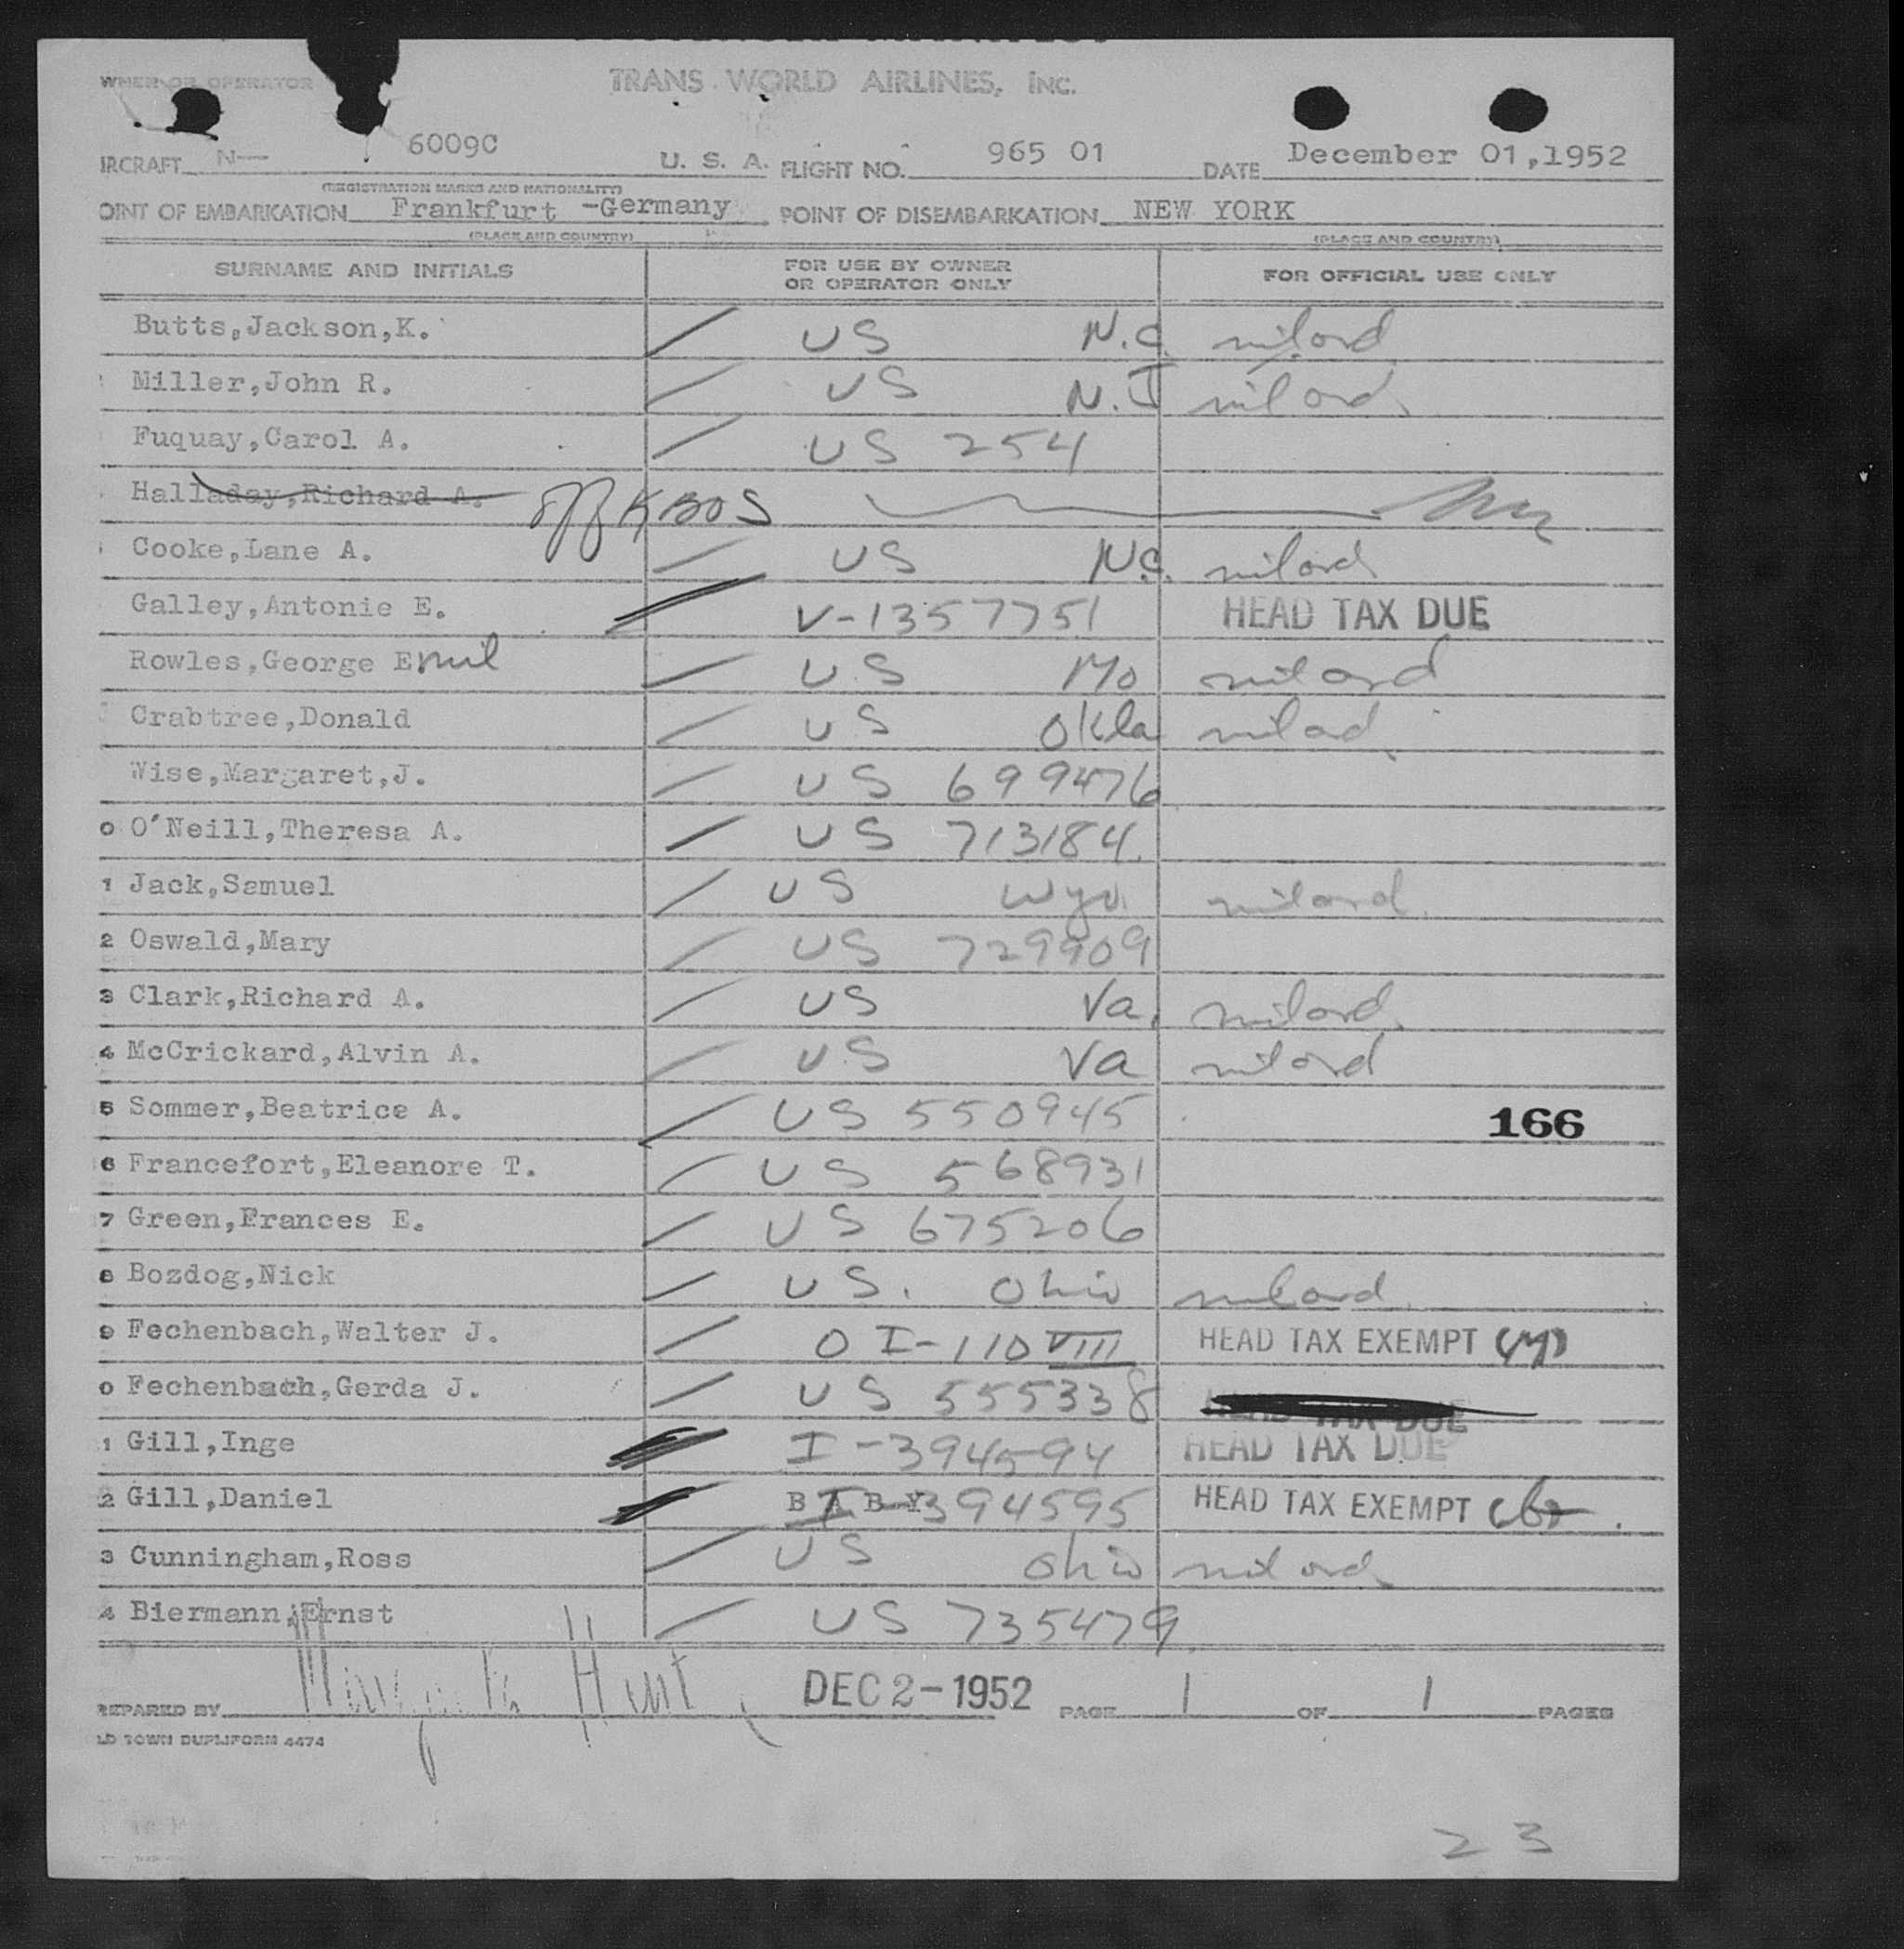 WNER OR OPERATOR TRANS WORLD AIRLINES, INC.
IRCRAFT N— 6009C U. S. A. FLIGHT NO. 965 01 DATE December 01,1952
(REGISTRATION MARKS AND NATIONALITY)
OINT OF EMBARKATION Frankfurt -Germany POINT OF DISEMBARKATION NEW YORK
(PLACE AND COUNTRY) (PLACE AND COUNTRY)
SURNAME AND INITIALS FOR USE BY OWNER OR OPERATOR ONLY FOR OFFICIAL USE ONLY
Butts,Jackson,K. US N.C. milord
Miller,John R. US N.J milord
Fuquay,Carol A. US 254
Halladay,Richard A. off KBOS
Cooke,Lane A. US N.C. milord
Galley,Antonie E. V-1357751 HEAD TAX DUE
Rowles,George Emil US Mo milord
Crabtree,Donald US Okla milord
Wise,Margaret,J. US 699476
0 O'Neill,Theresa A. US 713184.
1 Jack,Samuel US Wyo. milord.
2 Oswald,Mary US 729909
3 Clark,Richard A. US Va. milord
4 McCrickard,Alvin A. US Va milord
5 Sommer,Beatrice A. US 550945 166
6 Francefort,Eleanore T. US 568931
7 Green,Frances E. US 675206
8 Bozdog,Nick US. Ohio milord.
9 Fechenbach,Walter J. O I-110 VIII HEAD TAX EXEMPT
0 Fechenbach,Gerda J. US 555338 HEAD TAX DUE
1 Gill,Inge I-394594 HEAD TAX DUE
2 Gill,Daniel BABY I-394595 HEAD TAX EXEMPT
3 Cunningham,Ross US Ohio milord
4 Biermann,Ernst US 735479
REPARED BY Hunt DEC 2-1952 PAGE 1 OF 1 PAGES
LD TOWN DUPLIFORM 4474
23